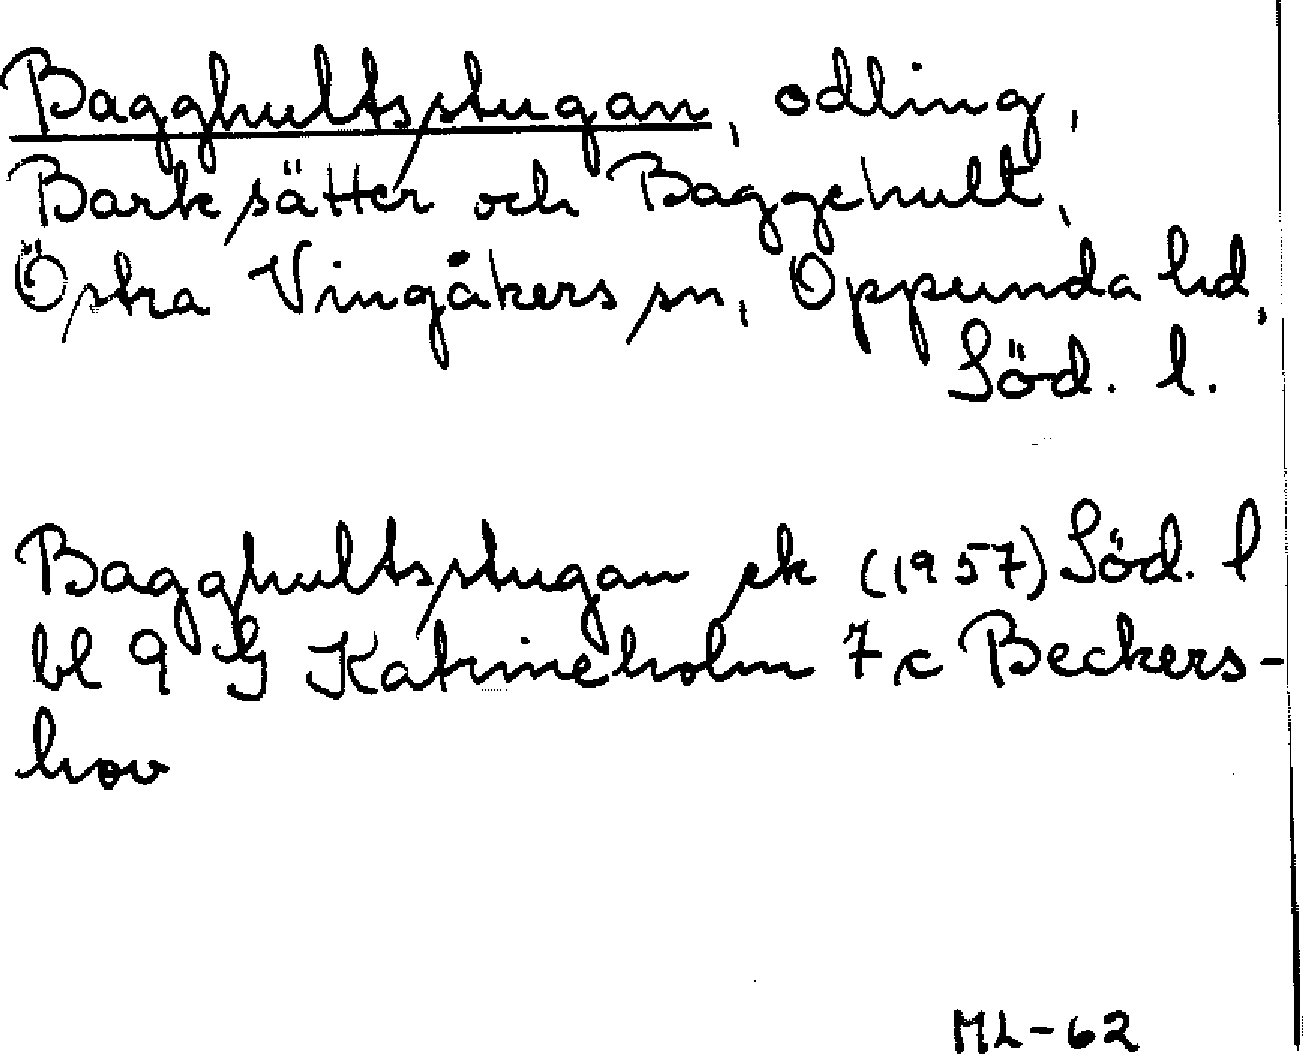 Bagghultsstugan, odling,
Barksätter och Baggehult,
Östra Vingåkers sn, Oppunda hd,
Söd. l.
Bagghultsstugan ek (1957) Söd. l
bl 9 G Katrineholm 7c Beckers-
hov
ML-62